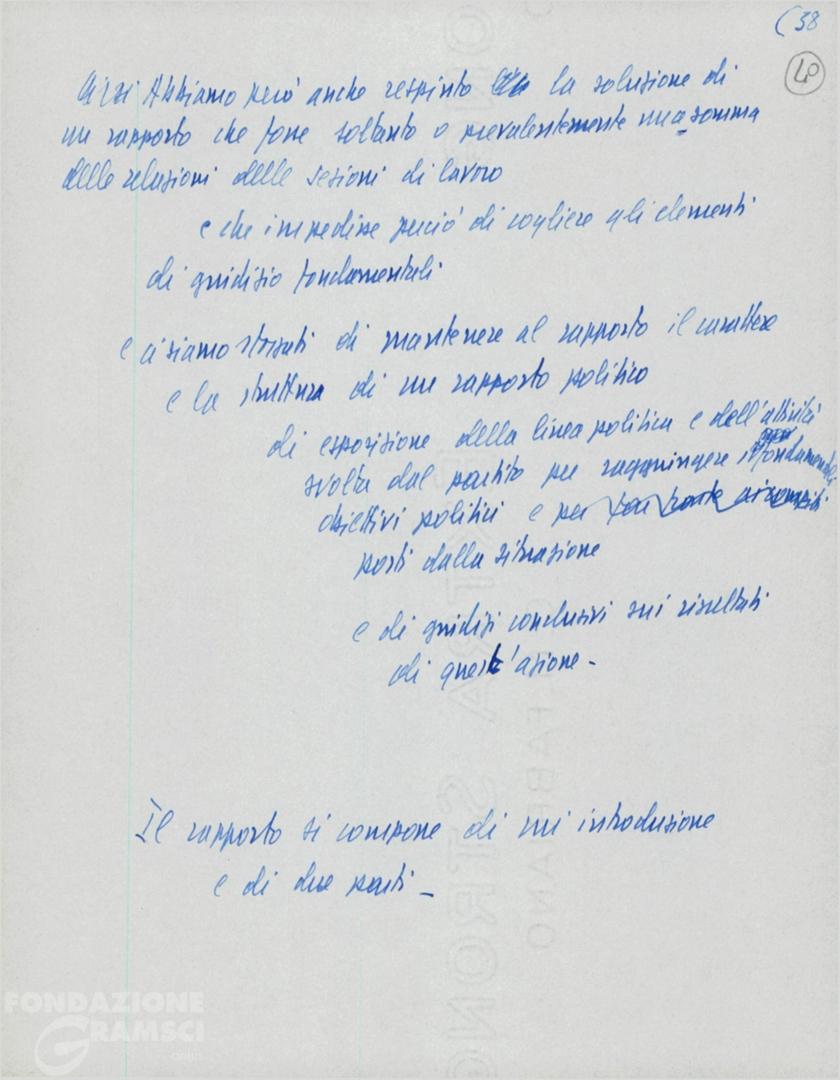 (38
40
Abbiamo però anche respinto la soluzione di
un rapporto che fosse soltanto o prevalentemente una somma
delle relazioni delle sezioni di lavoro
e che impedisse perciò di cogliere gli elementi
di giudizio fondamentali
e ci siamo sforzati di mantenere al rapporto il carattere
e la struttura di un rapporto politico
di esposizione della linea politica e dell'attività
svolta dal partito per raggiungere i fondamentali
obiettivi politici e per
posti dalla situazione
e di giudizi conclusivi sui risultati
di quest'azione -
Il rapporto si compone di un introduzione
e di due parti -
FONDAZIONE
GRAMSCI
ONLUS
EXTRA STRONG
FABRIANO